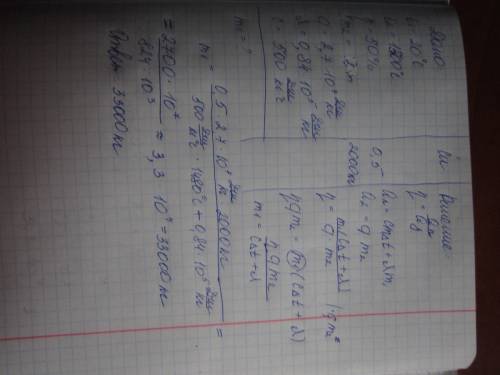 Дано:
t₁ = 20°С
t₂ = 1500°С
η = 50%
m₂ = 2 т
q = 2,7 · 10⁷ Дж/кг
λ = 0,84 · 10⁵ Дж/кг
c = 500 Дж/кг°С
m₁ = ?
Си
0,5
2000 кг
Решение:
η = Qп/Qз
Qп = cm₁Δt + λm₁
Qз = q m₂
η = m₁(cΔt + λ)/q m₂ | · q m₂
η q m₂ = m₁(cΔt + λ)
m₁ = η q m₂/cΔt + λ
m₁ = 0,5 · 2,7 · 10⁷ Дж/кг · 2000 кг / 500 Дж/кг°С · 1480°С + 0,84 · 10⁵ Дж/кг =
= 2700 · 10⁷ / 824 · 10³ = 3,3 · 10⁴ = 33000 кг
Ответ: 33000 кг